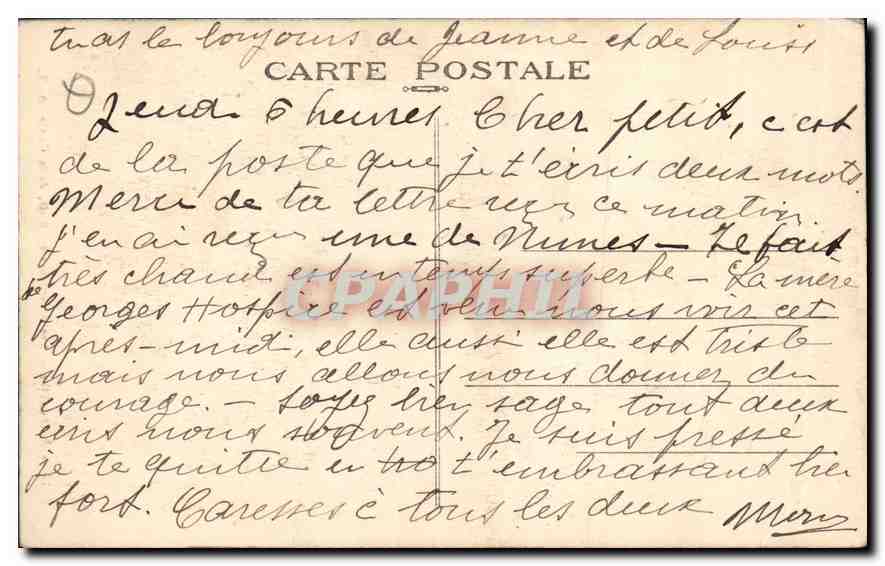 tu as le toujours de Jeanne et de Louise
CARTE POSTALE
Jeudi 6 heures. Cher petit, c'est
de la poste que je t'écris deux mots.
Merci de ta lettre reçu ce matin
j'en ai reçu une de Nimes - Il fait
très chaud est un temps superbe - La mère
de Georges Hospice est venu nous voir cet
après-midi, elle aussi elle est triste
mais nous allons nous donner du
courage. - Soyez bien sage tout deux
écris nous souvent. Je suis pressé
je te quitte en t'embrassant bien
fort. Caresses à tous les deux
CPAPHIL